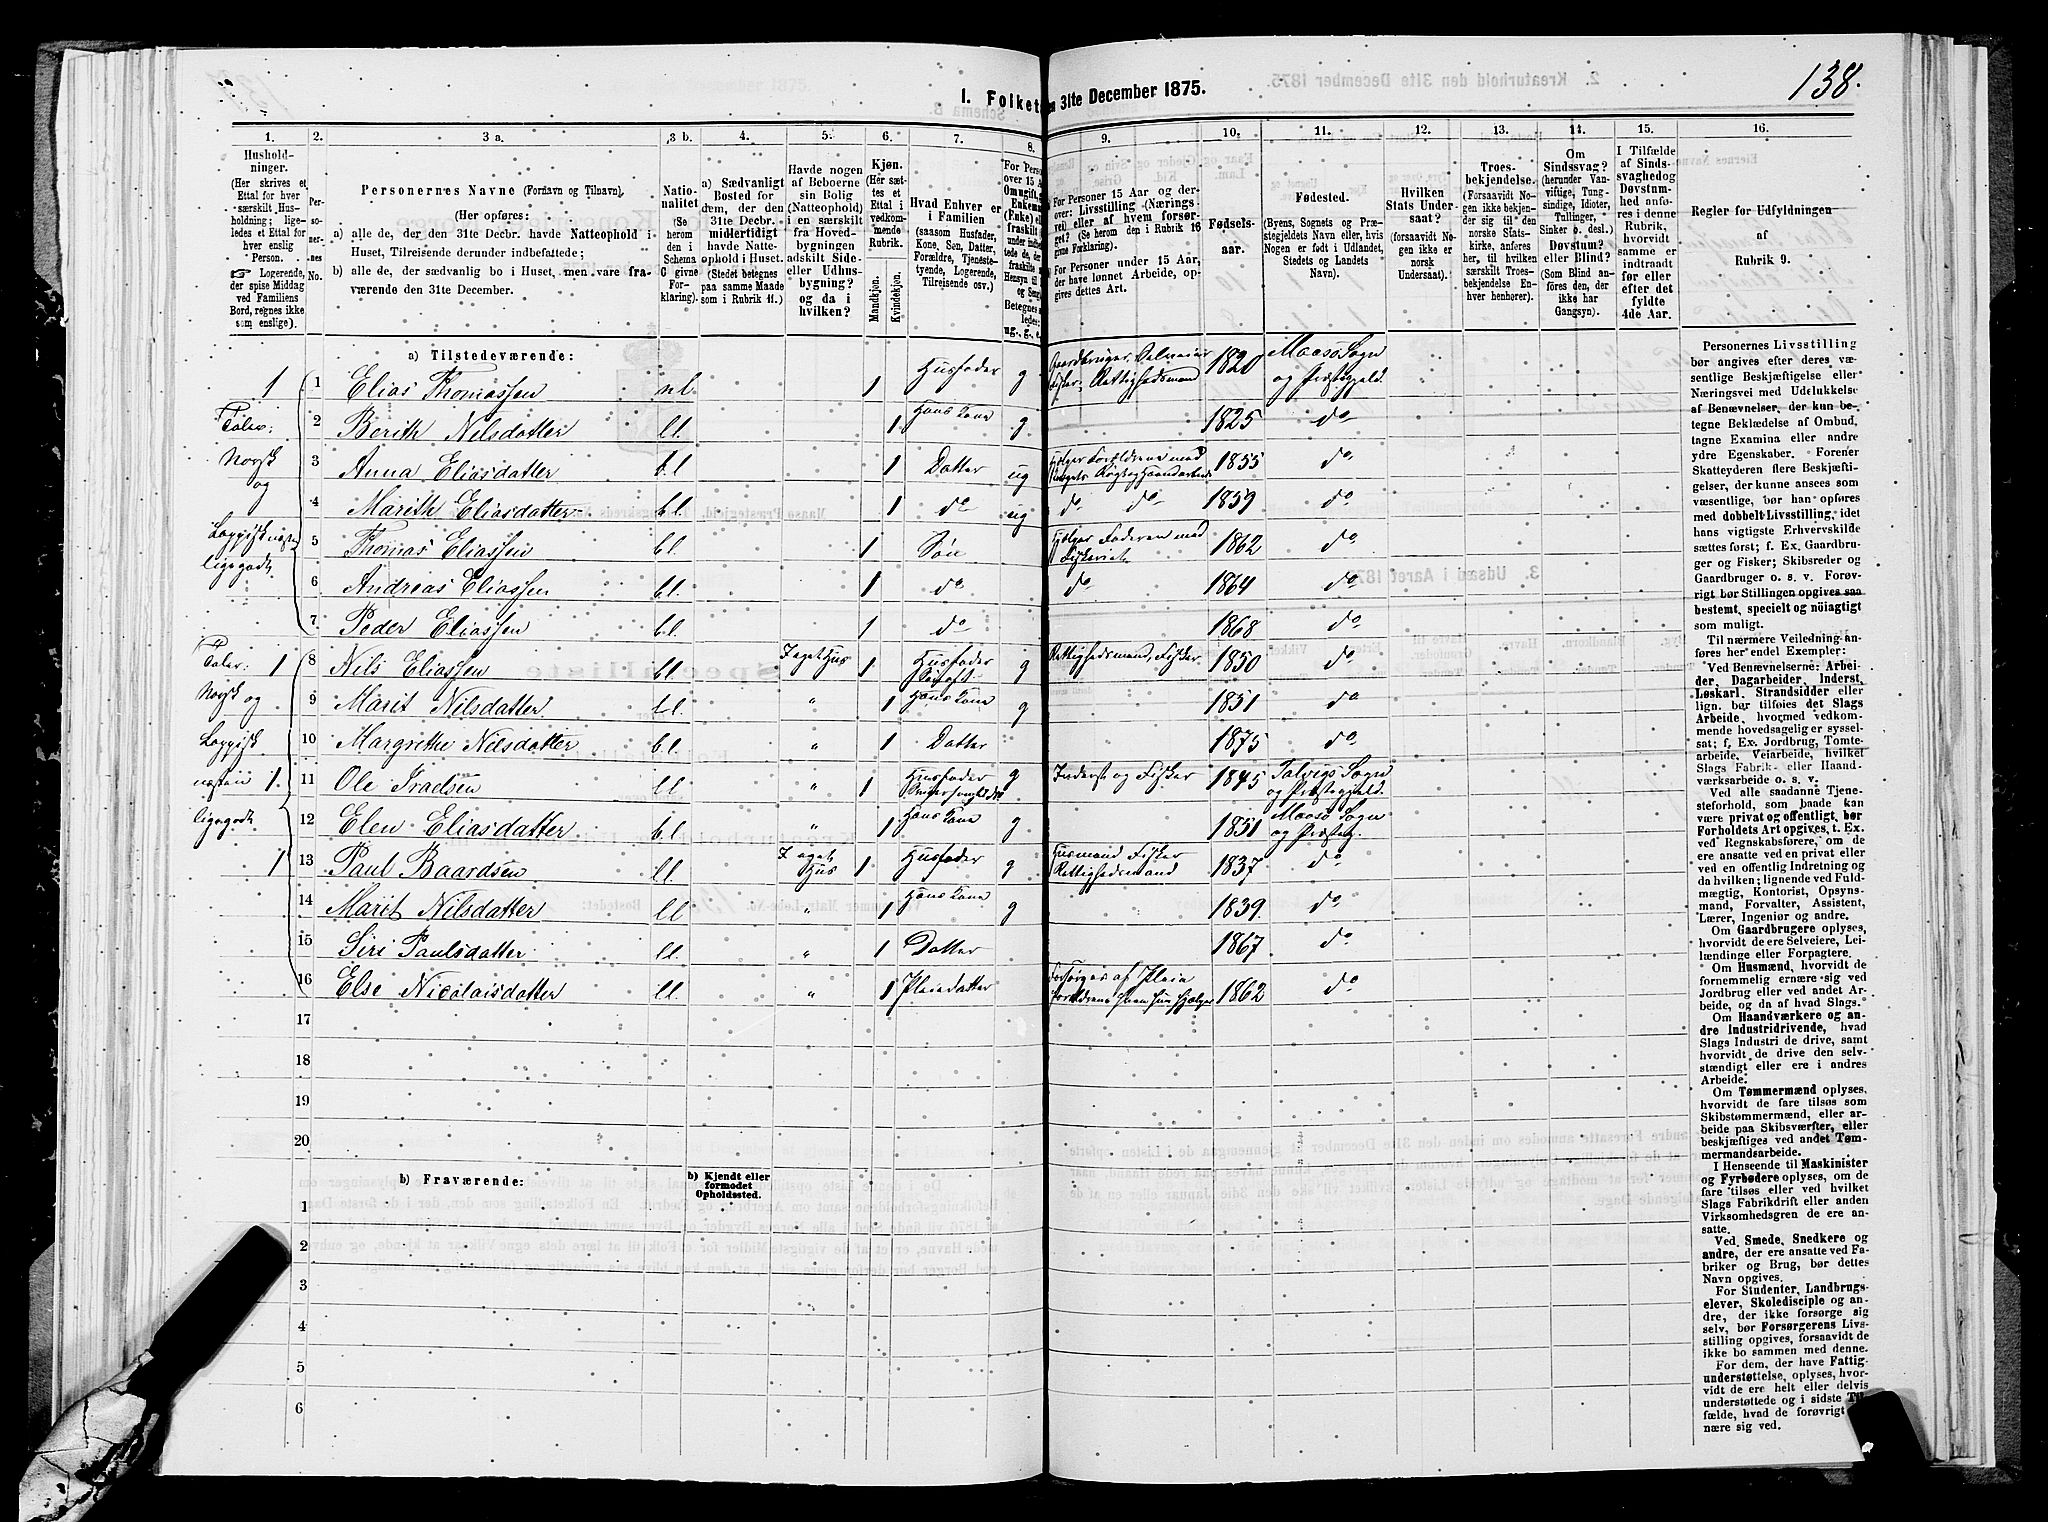 138.
I. Folket
n 31te December 1875.
1. 2. 3 a. 3 b. 4. 5. 6. 7. 8. 9. 10. 11. 12. 13. 14. 15. 16.
Husholdninger.
(Her skrives et
Ettal for hver
særskilt Husholdning;
ligeledes et Ettal for
hver enslig
Person.
☞ Logerende,
der spise Middag
ved Familiens
Bord, regnes ikke
som enslige).
Personernes No.
Personernes Navne (Fornavn og Tilnavn),
(Her opføres:
a) alle de, der den 31te Decbr. havde Natteophold i
Huset, Tilreisende derunder indbefattede;
b) alle de, der sædvanlig bo i Huset, men vare fraværende
den 31te December.
Nationalitet
(Se
herom
den i
Schema
C givne
Forklaring).
a) Sædvanligt
Bosted for
dem, der den
31te Decbr.
midlertidigt
havde Natteophold
i Huset.
(Stedet betegnes
paa samme Maade
som i Rubrik 11.)
Havde nogen
af Beboerne
sin Bolig
(Natteophold)
i en særskilt
fra Hovedbygningen
adskilt Side-
eller Udhusbygning?
og da i
hvilken?
Kjøn.
(Her sættes et
Ettal i
vedkommende
Rubrik.
Mandkjøn.
Kvindekjøn.
Hvad Enhver er
i Familien
(saasom Husfader,
Kone, Søn, Datter,
Forældre, Tjenestetyende,
Logerende,
Tilreisende osv.)
For Personer 15 Aar og derover:
Livsstilling (Næringsvei)
eller af hvem forsørget?
(Se herom den i Rubrik 16
givne Forklaring).
For Personer under 15 Aar,
der have lønnet Arbeide, opgives
dettes Art.
Fødselsaar.
Fødested.
(Byens, Sognets og Præstegjeldets
Navn eller, hvis
Nogen er født i Udlandet,
Stedets og Landets
Navn).
Hvilken
Stats Undersaat?
(forsaavidt Nogen
ikke er
norsk
Undersaat).
Troesbekjendelse.
(Forsaavidt Nogen
ikke bekjender
sig til den
norske Statskirke,
anføres,
til hvilken
særskilt Troesbekjendelse
Enhver
henhører).
Om
Sindssvag?
(herunder Vanvittige,
Tungsindige,
Idioter,
Tullinger,
Sinker o. desl.)
Døvstum?
eller Blind?
(Som Blind anføres
den, der
ikke har
Gangsyn).
I Tilfælde
af Sindssvaghed
og
Døvstumhed
anføres
i denne
Rubrik,
hvorvidt
samme er
indtraadt
før eller
efter det
fyldte
4de Aar.
Regler for Udfyldningen
af
Rubrik 9.
a) Tilstedeværende:
1 1 Elias Thomassen nl. 1 Husfader g Gaardbruger, Selveier Fisker, Rettighedsmand 1820 Maasø Sogn og Præstegjeld.
2 Berith Nilsdatter ll. 1 Hans Kone g. 1825 do
3 Anna Eliasdatter b.l 1 Datter ug 1855 do
4 Marith Eliasdatter b.l. 1 do ug do do 1859 do
5 Thomas Eliassen b.l. 1 Søn Hjælper Faderen med Fiskeriet 1862 do
6 Andreas Eliassen b.l. 1 do do 1864 do
7 Peder Eliassen b.l. 1 do 1868 do
Taler: Norsk og Lappisk næsten ligegodt
1 8 Nils Eliassen b.l. I eget Hus 1 Husfader g Rettighedsmand, Fisker 1850 do
9 Marit Nilsdatter l.l. " 1 Hans Kone g 1851 do
10 Margrethe Nilsdatter b.l. " 1 Datter 1875 do
1. 11 Ole Iradsen ll. " 1 Husfader g Inderst og Fisker 1845 Talvigs Sogn og Præstegjeld.
12 Elen Eliasdatter b.l. " 1 Hans Kone g 1851 Maasø Sogn og Præsteg.
1 13 Paul Baardsen ll. I eget Hus 1 Husfader g Husmand Fisker Rettighedsmand 1837 do
14 Marit Nilsdatter ll " 1 Hans Kone g 1839. do
15 Siri Paulsdatter ll. " 1 Datter 1867 do
16 Else Nicolaisdatter ll. " 1 Pleiedatter 1862 do
Taler: Norsk og Lappisk næsten ligegodt
17
18
19
20
b) Fraværende:
b) Kjendt eller
formodet
Opholdssted.
1
2
3
4
5
6
Personernes Livsstilling
bør angives efter deres væsentlige
Beskjæftigelse eller
Næringsvei med Udelukkelse
af Benævnelser, der kun betegne
Beklædelse af Ombud,
tagne Examina eller andre
ydre Egenskaber. Forener
Skatteyderen flere Beskjæftigelser,
der kunne ansees som
væsentlige, bør han opføres
med dobbelt Livsstilling, idet
hans vigtigste Erhvervskilde
sættes først; f. Ex. Gaardbruger
og Fisker; Skibsreder og
Gaardbruger o. s. v. Forøvrigt
bør Stillingen opgives saa
bestemt, specielt og nöiagtigt
som muligt.
Til nærmere Veiledning anføres
her endel Exempler:
Ved Benævnelserne: Arbeider,
Dagarbeider, Inderst,
Løskarl, Strandsidder eller
lign. bør tilføies det Slags
Arbeide, hvormed vedkommende
hovedsagelig er sysselsat;
f. Ex. Jordbrug, Tomtearbeide,
Veiarbeide, hvilket
Slags Fabrik- eller Haandværksarbeide
o. s. v.
Ved alle saadanne Tjenesteforhold,
som baade kan
være privat og offentligt, bør
Forholdets Art opgives, t. Ex.
ved Regnskabsførere, om de
ere ansatte ved en privat eller
ved en offentlig Indretning og
da hvilken; lignende ved Fuldmægtig,
Kontorist, Opsynsmand,
Forvalter, Assistent,
Lærer, Ingeniør og andre.
Om Gaardbrugere oplyses,
hvorvidt de ere Selveiere, Leilændinge
eller Forpagtere.
Om Husmænd, hvorvidt de
fornemmelig ernære sig ved
Jordbrug eller ved andet Arbeide,
og da af hvad Slags.
Om Haandværkere og andre
Industridrivende, hvad
Slags Industri de drive, samt
hvorvidt de drive den selvstændigt
eller ere i andres
Arbeide.
Om Tømmermænd oplyses,
hvorvidt de fare tilsøs som
Skibstømmermænd, eller arbeide
paa Skibsværfter, eller
beskjæftiges ved andet Tømmermandsarbeide.
I Henseende til Maskinister
og Fyrbødere oplyses, om de
fare tilsøs eller ved hvilket
Slags Fabrikdrift eller anden
Virksomhedsgren de ere ansatte.
Ved Smede, Snedkere og
andre, der ere ansatte ved Fabriker
og Brug, bør dettes
Navn opgives.
For Studenter, Landbrugselever,
Skoledisciple og andre,
der ikke forsørge sig
selv, bør Forsørgerens Livsstilling
opgives, forsaavidt de
ikke bo sammen med denne.
For dem, der have Fattigunderstøttelse,
oplyses, hvorvidt
de ere helt eller delvis
understøttede og i sidste Tilfælde,
hvad de forøvrigt
nære sig ved.